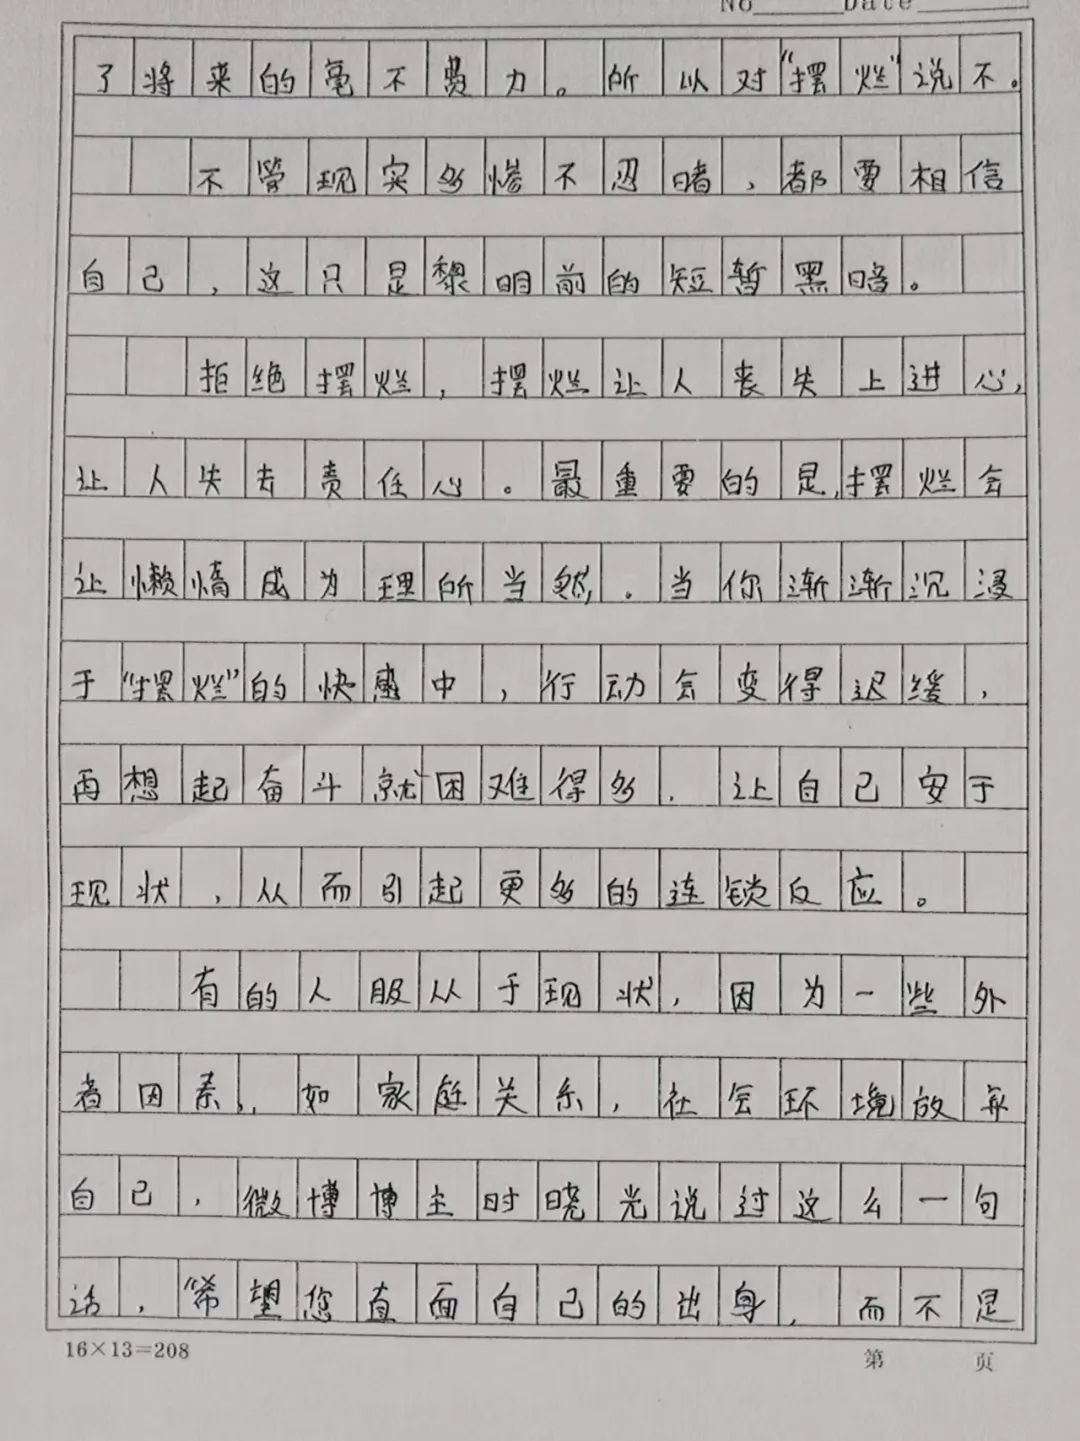 No Date
了将来的毫不费力。所以对“摆烂”说不。
不管现实多惨不忍睹，都要相信
自己，这只是黎明前的短暂黑暗。
拒绝摆烂，摆烂让人丧失上进心，
让人失去责任心。最重要的是，摆烂会
让懒惰成为理所当然。当你渐渐沉浸
于“摆烂”的快感中，行动会变得迟缓，
再想起奋斗就困难得多．让自己安于
现状，从而引起更多的连锁反应。
有的人服从于现状，因为一些外
者因素，如家庭关系，社会环境放弃
自己，微博博主时晓光说过这么一句
话，“希望您直面自己的出身，而不是
16×13=208 第 页